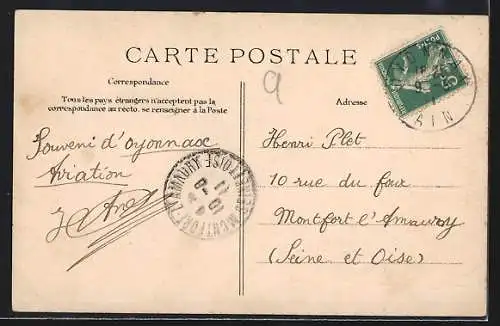 CARTE POSTALE
Correspondance
Tous les pays étrangers n'acceptent pas la
correspondance au recto, se renseigner à la Poste
Souveni d'oyonnax
Aviation
9
Adresse
POSTES
AIN
MONTFORT-L'AMAURY
Henri Plet
10 rue du four
Montfort l'Amaury
(Seine et Oise)